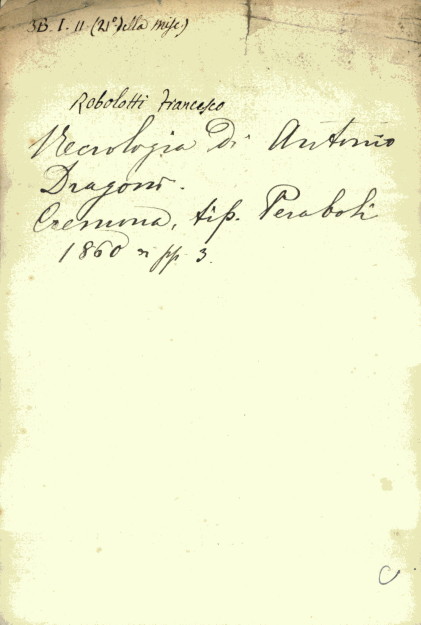 3B. I. 11. (21° della misc)
Robolotti Francesco
Necrologia di Antonio
Dragoni.
Cremona, tip. Peraboli
1860 pp. 3.
C